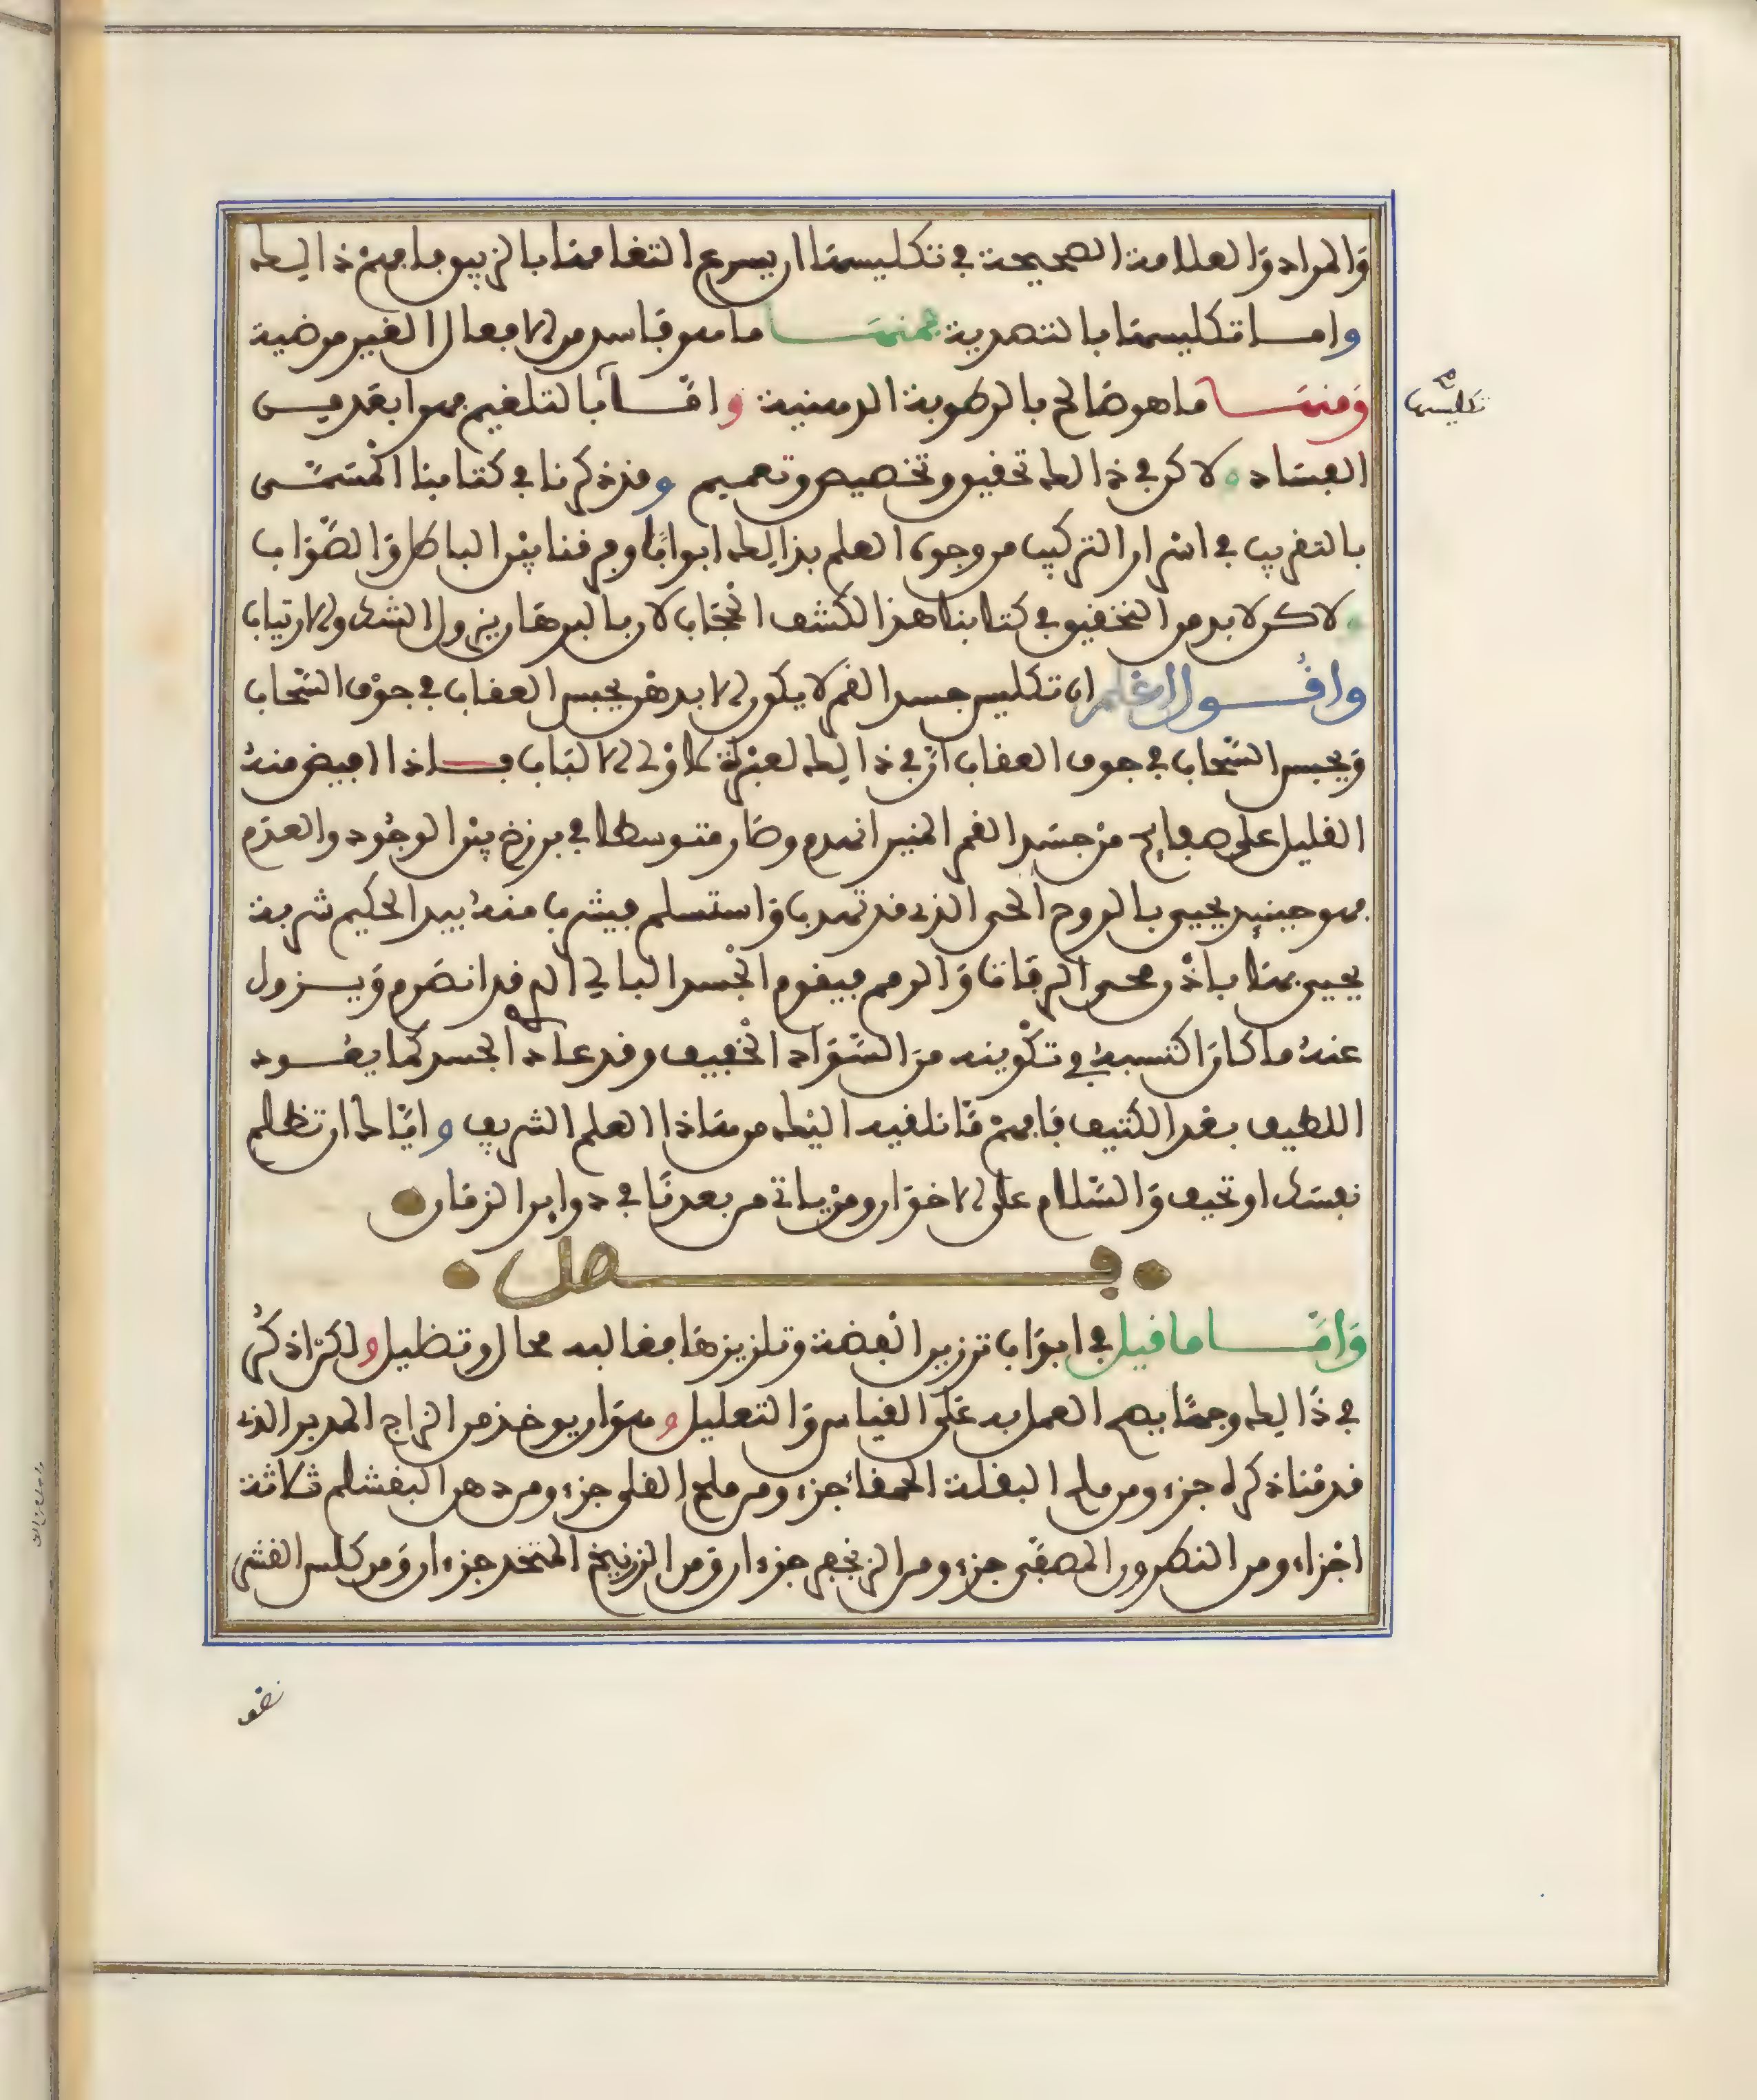 وَالمراد وَالعلامة الصحيحة في تكليسها ان يسرع التغامها بالزيبو فافهم ذالك
واما تكليسها بالتصدية فمنها ما هو فاسد من الافعال الغير مرضية
وَمنها ما هو صَالح بالرطوبة الدهنية وامّا بالتلغيم فهوا بعد من
تكليسها
الفساد ولاكن في ذالك تحقيق وتخصيص وتعميم وقد ذكرنا في كتابنا المسَمّى
بالتقريب في اسْرار التركيب من وجوه العلم بذالك ابوابًا وفرقنا بيْن الباطل وَالصّوَاب
ولاكن لابد من التحقيق في كتابنا هذا لكشف الحجَاب لان بالبرهان يزول الشك والارتياب
واقُول اعلم ان تكليس جسد القمر لا يكون الا بدهن يحبس العقاب في جوْف السّحاب
وَيحبس السّحاب في جوف العقاب انّ في ذالك لعبْرة لاوْلى الالبَاب فاذا افيض منهُ
القليل على صفايح منْ جسَد القمر المنير انهدم وصَار متوسطا في برزخ بيْن الوجُود والعدَم
فهو حينيد يحيى بالروح الحى الذى قد تهدب وَاستسلم فيشرب منهُ بيد الحكيم شربة
يحيى بها باذْن محى الرفات وَالرمم فيقوم الجْسد البالي الذى قد انصَرم وَيزول
عنهُ ما كان اكتسبهُ في تكْوينه منَ السّوَاد الخْفيف وقد عادَ الجسد كما يعُود
اللطيف بعْد الكثيف فافهمْ مَا نلقيه اليْك من هَاذا العلم الشريف وايّاك ان تظلم
نفسَك او تحيف وَالسّلام على الاخوَان ومنْ ياتى من بعدنَا في دواير الزمَان
فصل
وَامّا ما قيل في ابوَاب ترزين الفضة وتلزيزهَا فغالبه محال وتضليل ولكنْ اذكُر
في ذَالك وجهًا يصح العمل به عَلَى القياس وَالتعليل وهوَ ان يوخذ من الزاج المدبر الذى
قدمْنا ذكره جزء ومن ملح البقلة الحمقا جزء ومن ملح القلى جزء ومن دهن البقشلم ثلاثة
اجْزاء ومن النطرون المصفّى جزء ومن الزنجفر جزءان وَمن الزرنيخ المتخد جزءان وَمن كلس القشر